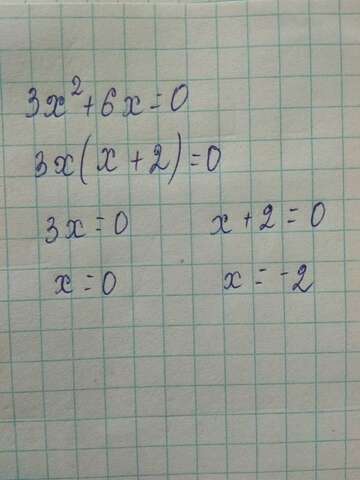 3x²+6x=0
3x(x+2)=0
3x=0 x+2=0
x=0 x=-2